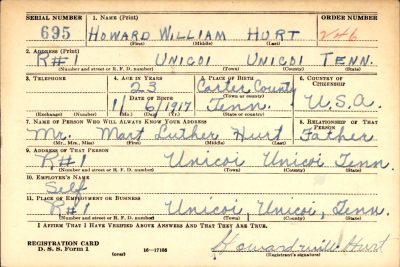 SERIAL NUMBER 1. NAME (Print) ORDER NUMBER
695 HOWARD WILLIAM HURT V46
(First) (Middle) (Last)
2. ADDRESS (Print)
R#1 UNICOI UNICOI TENN.
(Number and street or R. F. D. number) (Town) (County) (State)
3. TELEPHONE 4. AGE IN YEARS 5. PLACE OF BIRTH 6. COUNTRY OF CITIZENSHIP
23 Carter County
(Town or county)
DATE OF BIRTH
1/6/1917 Tenn. U.S.A.
(Exchange) (Number) (Mo.) (Day) (Yr.) (State or country)
7. NAME OF PERSON WHO WILL ALWAYS KNOW YOUR ADDRESS 8. RELATIONSHIP OF THAT PERSON
Mr. Mart Luther Hurt Father
(Mr., Mrs., Miss) (First) (Middle) (Last)
9. ADDRESS OF THAT PERSON
R#1 Unicoi Unicoi Tenn.
(Number and street or R. F. D. number) (Town) (County) (State)
10. EMPLOYER'S NAME
Self
11. PLACE OF EMPLOYMENT OR BUSINESS
R#1 Unicoi, Unicoi, Tenn.
(Number and street or R. F. D. number) (Town) (County) (State)
I AFFIRM THAT I HAVE VERIFIED ABOVE ANSWERS AND THAT THEY ARE TRUE.
REGISTRATION CARD
D. S. S. Form 1 (over) 16—17105 Howard Hurt
(Registrant's signature)